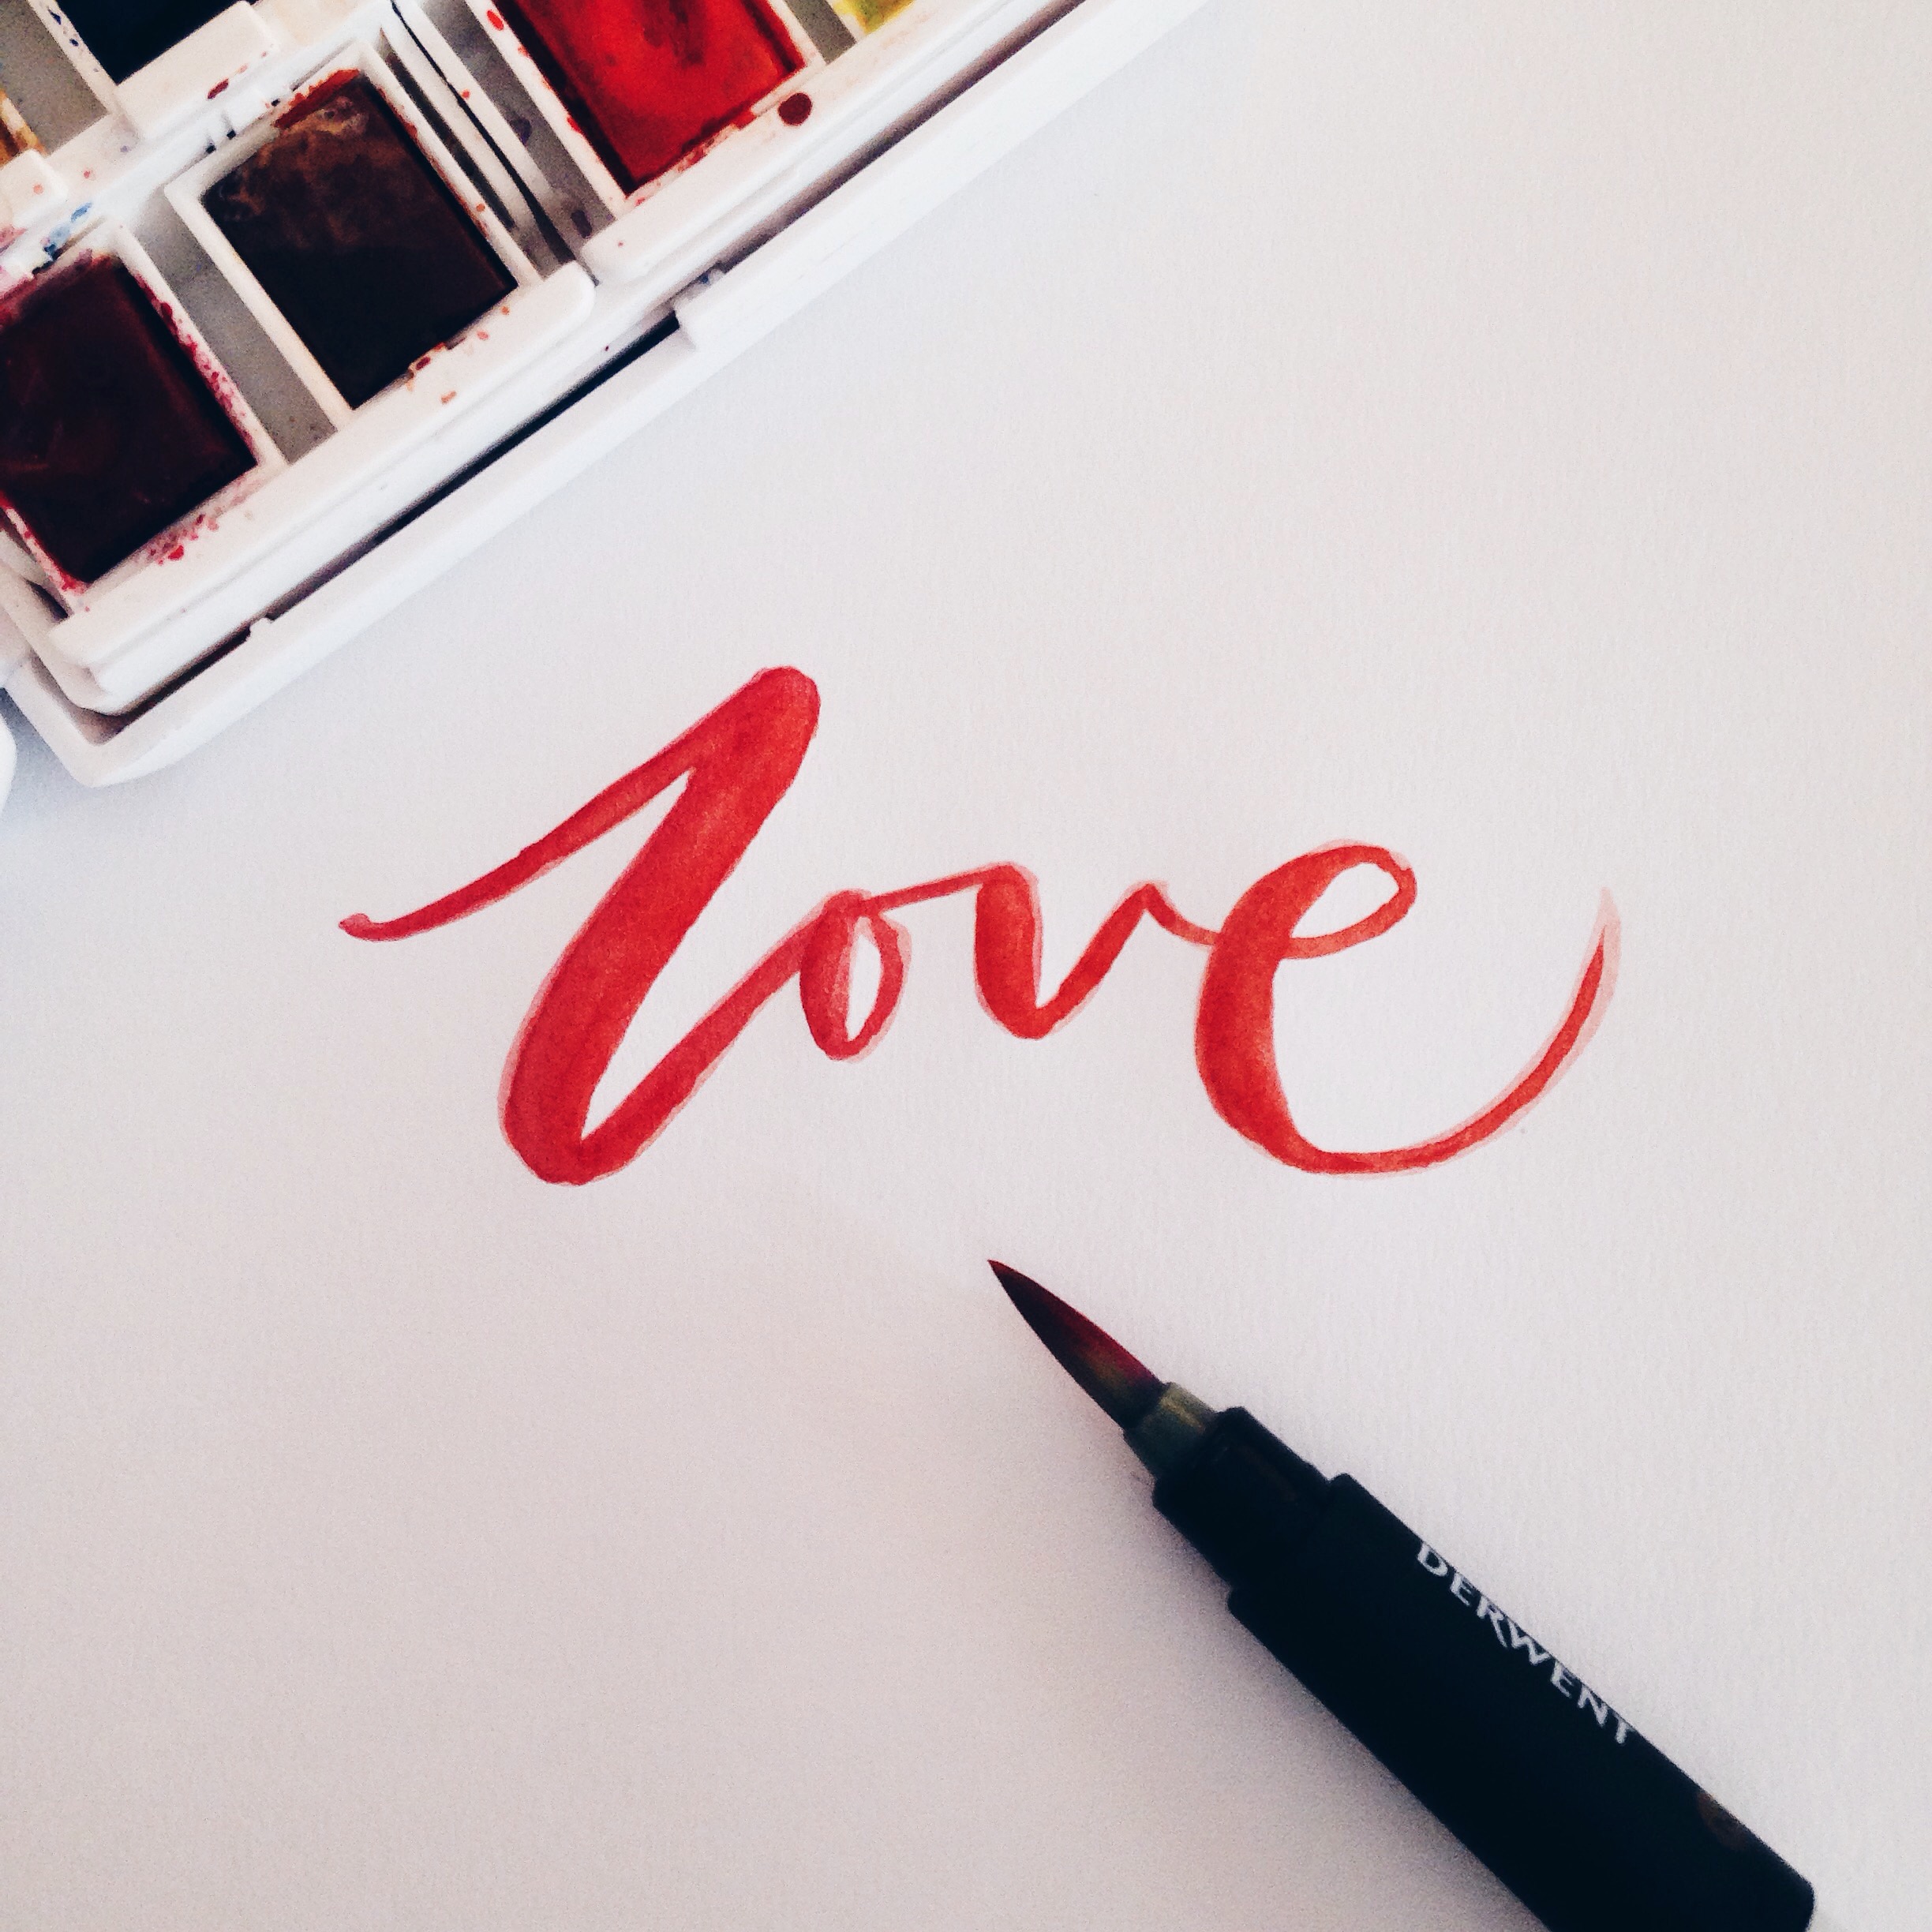 love
DERWENT